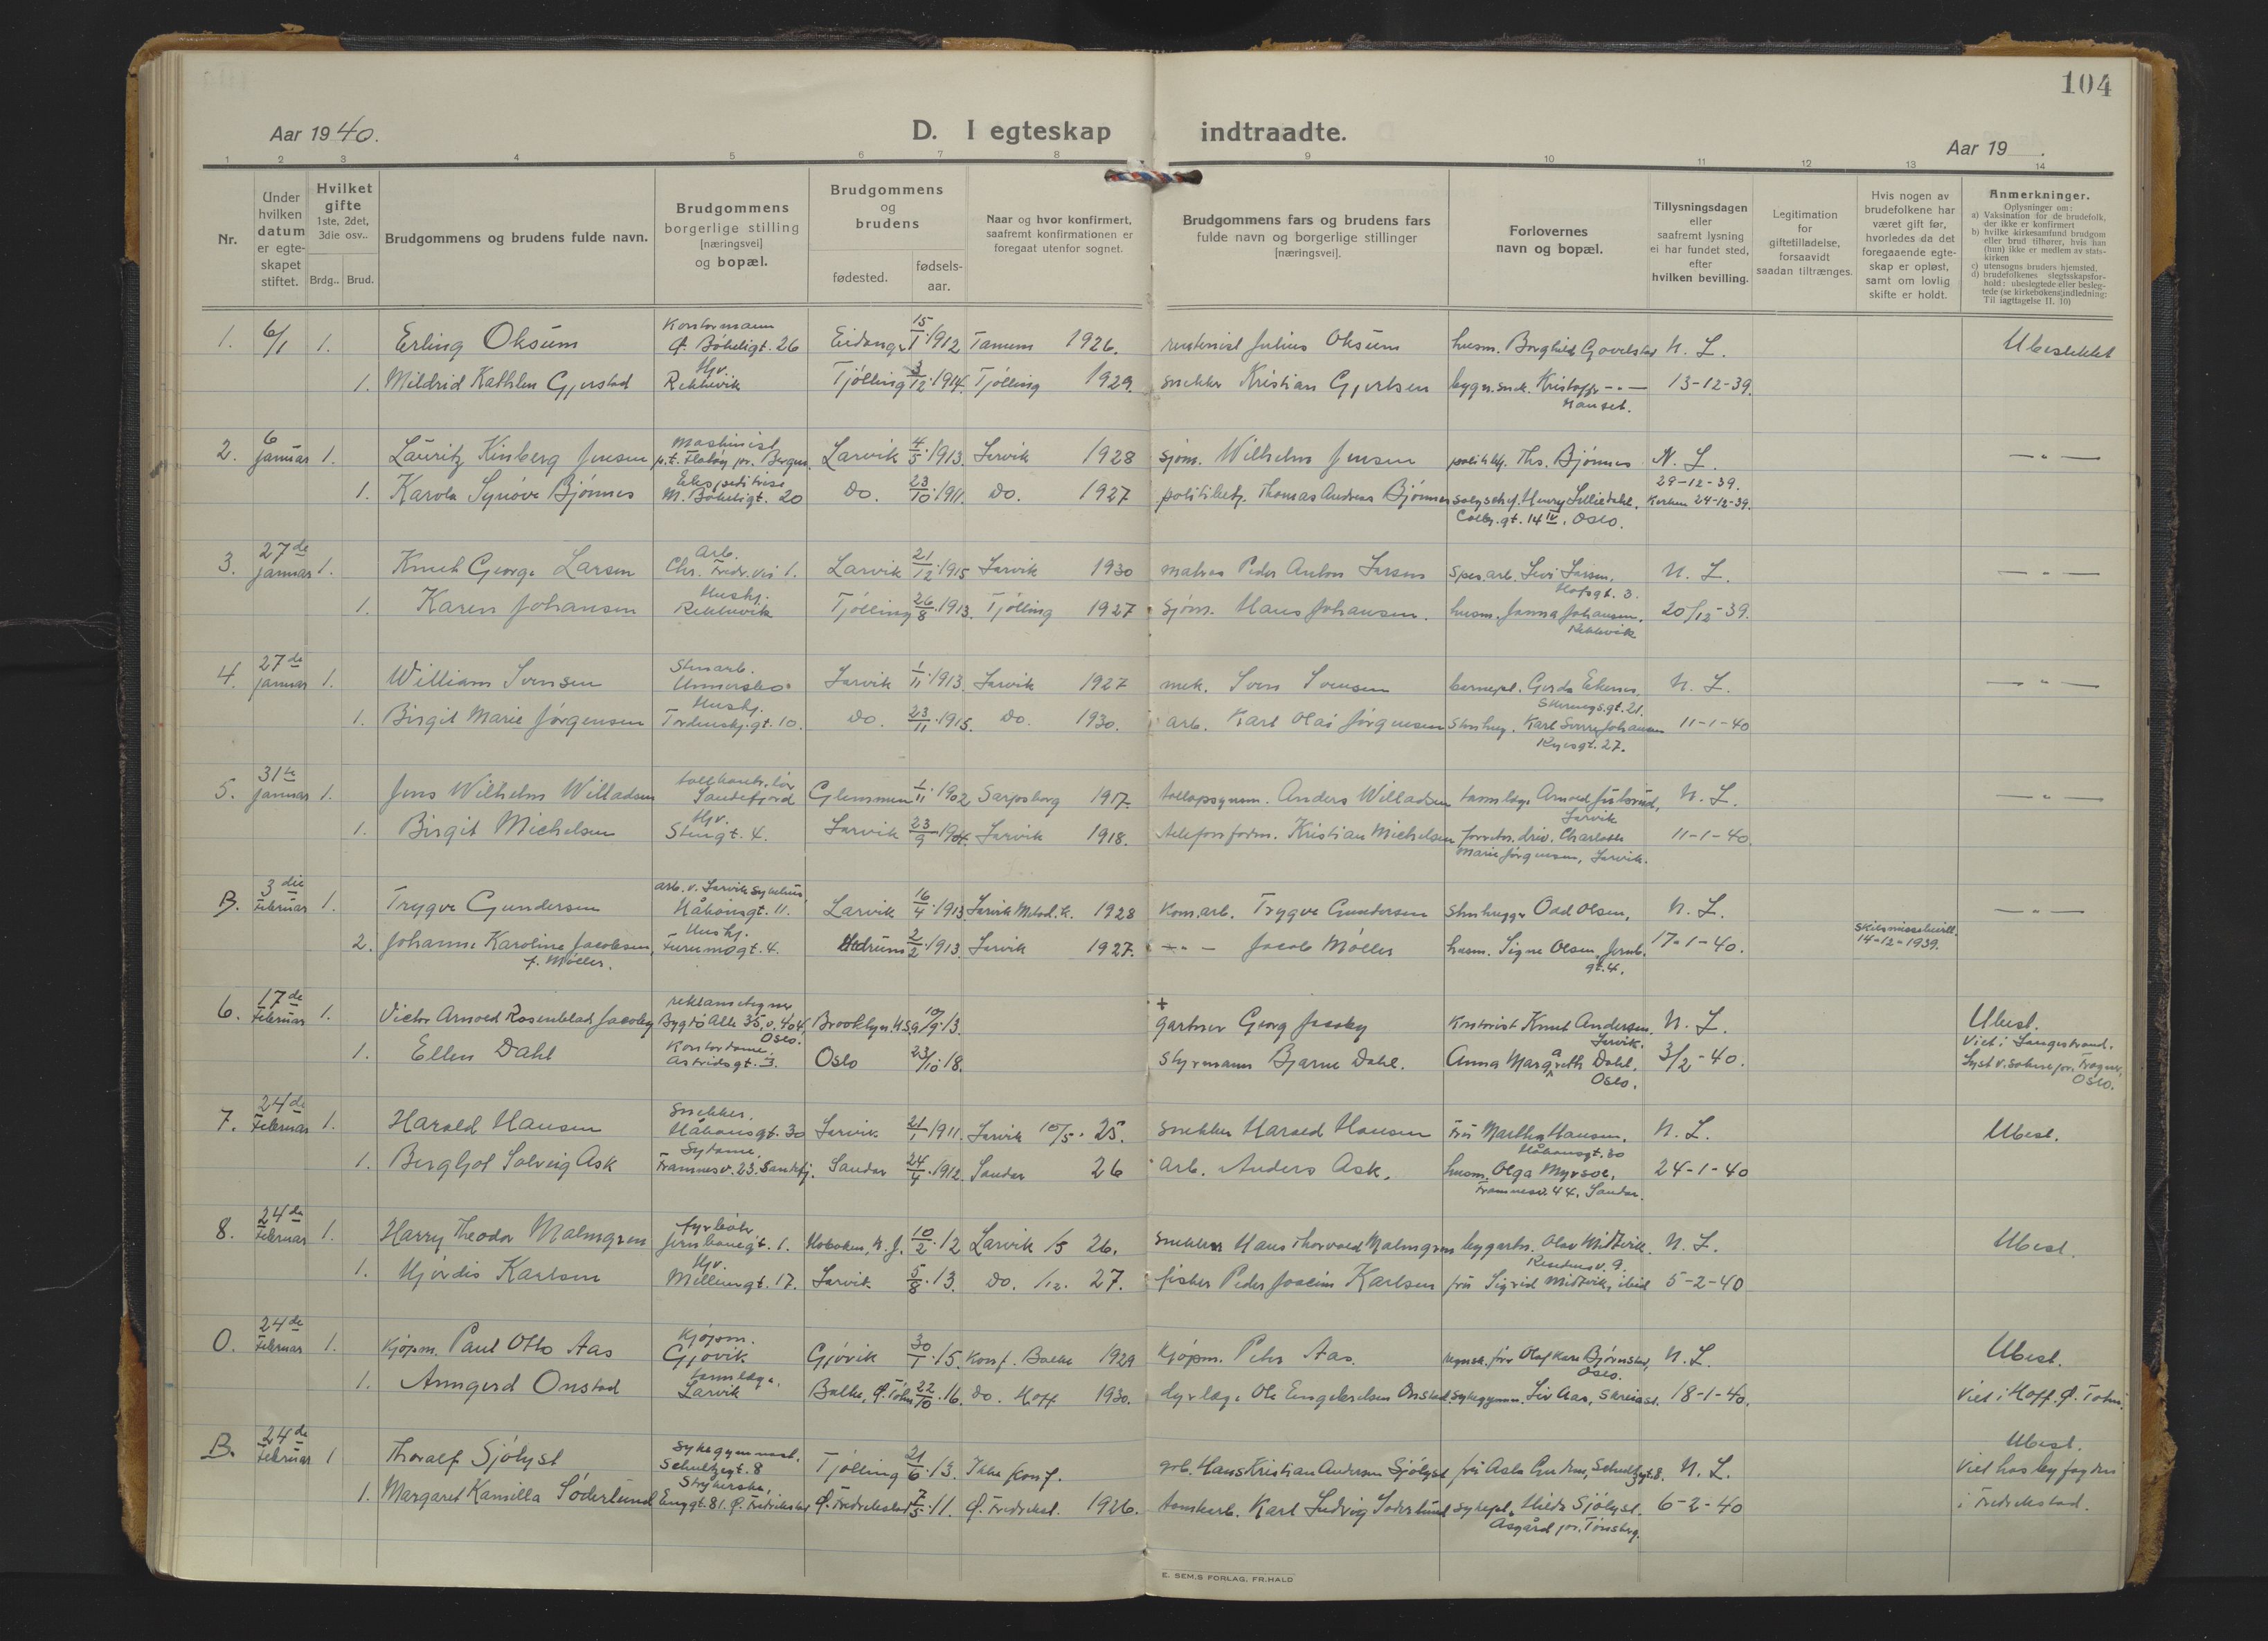 104
Aar 1940.
D. I egteskap indtraadte.
Aar 19
1 2 3 4 5 6 7 8 9 10 11 12 13 14
Nr.
Under hvilken datum er egteskapet stiftet.
Hvilket gifte 1ste, 2det, 3die osv..
Brdg.. Brud.
Brudgommens og brudens fulde navn.
Brudgommens borgerlige stilling [næringsvei] og bopæl.
Brudgommens og brudens
fødested.
fødsels-aar.
Naar og hvor konfirmert, saafremt konfirmationen er foregaat utenfor sognet.
Brudgommens fars og brudens fars fulde navn og borgerlige stillinger [næringsvei].
Forlovernes navn og bopæl.
Tillysningsdagen eller saafremt lysning ei har fundet sted, efter hvilken bevilling.
Legitimation for giftetilladelse, forsaavidt saadan tiltrænges.
Hvis nogen av brudefolkene har været gift før, hvorledes da det foregaaende egteskap er opløst, samt om lovlig skifte er holdt.
Anmerkninger.
Oplysninger om:
a) Vaksination for de brudefolk, der ikke er konfirmert
b) hvilke kirkesamfund brudgom eller brud tilhører, hvis han (hun) ikke er medlem av statskirken
c) utensogns bruders hjemsted.
d) brudefolkenes slegtsskapsforhold: ubeslegtede eller beslegtede (se kirkebokens indledning: Til iagttagelse II. 10)
1. 6/1 1. Erling Oksum Kontormann Ø. Bøkeligt. 26 Eidanger 15/1 1912 Tanum 1926. Julius Oksum husm. Borghild N. L. Ubeslektet
1. Mildrid Kathlen Gjerstad Hv. Rekkevik Tjølling 3/12 1914. Tjølling 1929. snekker Kristian Gjertsen bygn.snek. Kristoffer -"- 13-12-39.
2. 6 januar 1. Lauritz Kinberg Jensen Maskinist p.t. Flatøy pr. Bergen. Larvik 4/5 1913. Larvik 1928 sjøm. Wilhelm Jensen politibtj. Ths. Bjønnes N. L. -"-
29-12-39.
1. Karola Synøve Bjønnes Ekspeditrise M. Bøkeligt. 20 Do. 23/10 1911. Do. 1927 politibetj. Thomas Andreas Bjønnes salgschef. Henry Lilliedahl, Colbj.gt. 14 IV, Oslo. Kirken 24-12-39.
3. 27de januar 1. Knut George Larsen Arb. Chr. Fredr. vei 1. Larvik 21/12 1915 Larvik 1930 matros Peder Anton Larsen Spes.arb. Levi Larsen, Hofsgt. 3. N. L. -"-
1. Karen Johansen Hushj. Rekkevik Tjølling 26/8 1913. Tjølling 1927 sjøm. Hans Johansen. husm. Janna Johansen, Rekkevik 20/12-39.
4. 27de januar 1. William Svensen Stenarb. Unnersbo Larvik 1/11 1913. Larvik 1927 mek. Sven Svensen Gerda Ekernes, Skiringsgt. 21. N. L. -"-
1. Birgit Marie Jørgensen Hushj. Tordenskj.gt. 10. Do. 23/11 1915. Do. 1930. arb. Karl Olai Jørgensen Stenhug. Karl Sverre Johansen Ryesgt. 27. 11-1-40
5. 31te januar 1. Jens Wilhelm Willadsen tollkontrolør Sandefjord Glemmen 1/11 1902 Sarpsborg 1917. tolloppsynsm. Anders Willadsen tannlæge Arnold Larvik N. L. -"-
1. Birgit Michelsen Hv. Stengt. 4. Larvik 23/9 1904. Larvik 1918. telefonform. Kristian Michelsen forretn. driv. Charlotte Marie Jørgensen, Larvik. 11-1-40.
B. 3die Februar 1. Trygve Gundersen arb. v. Larvik Sykehus Håkonsgt. 11. Larvik 16/4 1913 Larvik Metod. k. 1928 Kom.arb. Trygve Gundersen Stenhugger Odd Olsen, N. L. -"-
2. Johanne Karoline Jacobsen, f. Møller. Hushj. Furumogt. 4. Hedrum 2/2 1913. Larvik 1927. -"- Jacob Møller husm. Signe Olsen, Jernb. gt. 4. 17-1-40. Skilsmissebevill. 14-12-1939.
6. 17de Februar 1. Victor Arnold Rosenblad Jacoby reklametegner Bygdø Alle 35, v. 404, Oslo. Brooklyn. USA 10/9 13. + gartner Georg Jacoby Kontorist Knut Andersen, Larvik. N. L. Ubesl. Viet i Langestrand.
1. Ellen Dahl Kontordame, Astridsgt. 3. Oslo 23/10 18. Styrmann Bjarne Dahl. Anna Margareth Dahl. Oslo. 3/2-40. Lyst v. sokne pr. Frogner, Oslo.
7. 24de Februar 1. Harald Hansen Snekker. Håkonsgt. 30 Larvik 21/1 1911. Larvik 10/5. 25. Snekker Harald Hansen Fru Martha Hansen, Håkonsgt. 30 N. L. Ubesl.
1. Bergljot Solveig Ask Sydame, Framnesv. 23. Sandefj. Sandar 24/4 1912. Sandar 26 arb. Anders Ask. husm. Olga Myrsoe, Framnesv. 44, Sandar. 24-1-40
8. 24de Februar 1. Harry Theodor Malmgren fyrbøter Jernbanegt. 1. Hoboken, N. J. 10/2 12 Larvik /5 26. Snekker Hans Thorvald Malmgren bygartn. Olav Midtvik. N. L. Ubesl.
1. Hjørdis Karlsen Hv. Møllergt. 17. Larvik 5/8 13. Do. /12. 27. fisker Peder Joacim Karlsen fru Sigrid Midtvik, ibid 5-2-40
O. 24de Februar 1. kjøpm. Paul Otto Aas Kjøpm. Gjøvik Gjøvik 30/1 15. Konf. Balke 1929 kjøpm. Peter Aas. regnsk. fører Olaf Kåre Bjørnstad, Oslo. N. L. Ubesl.
1. Anngerd Onstad tannlæge. Larvik Balke, Ø. Toten 22/10 16. Do. Hoff 1930. dyrlæge Ole Engebretsen Onstad. sykegymn. Liv Aas, 18-1-40. Viet i Hoff. Ø. Toten.
B. 24de Februar 1 Thoralf Sjølyst Sykegymnast. Schultzegt. 8 Tjølling 21/6 13. Ikke konf. Hans Kristian Andersen Sjølyst fru Asta Schultzgt. 8. N. L. Ubesl. Viet hos byfogden
1. Margaret Kamilla Söderlund Strykerske, Enggt. 81. Ø. Fredrikstad Ø. Fredrikstad 7/5 11. Ø. Fredrikst. 1926. tomtearb. Karl Ludvig Söderlund sykepl. Hilda Sjølyst. Åsgård pr. Tønsberg. 6-2-40 i Fredrikstad.
E. SEM.S FORLAG, FR.HALD